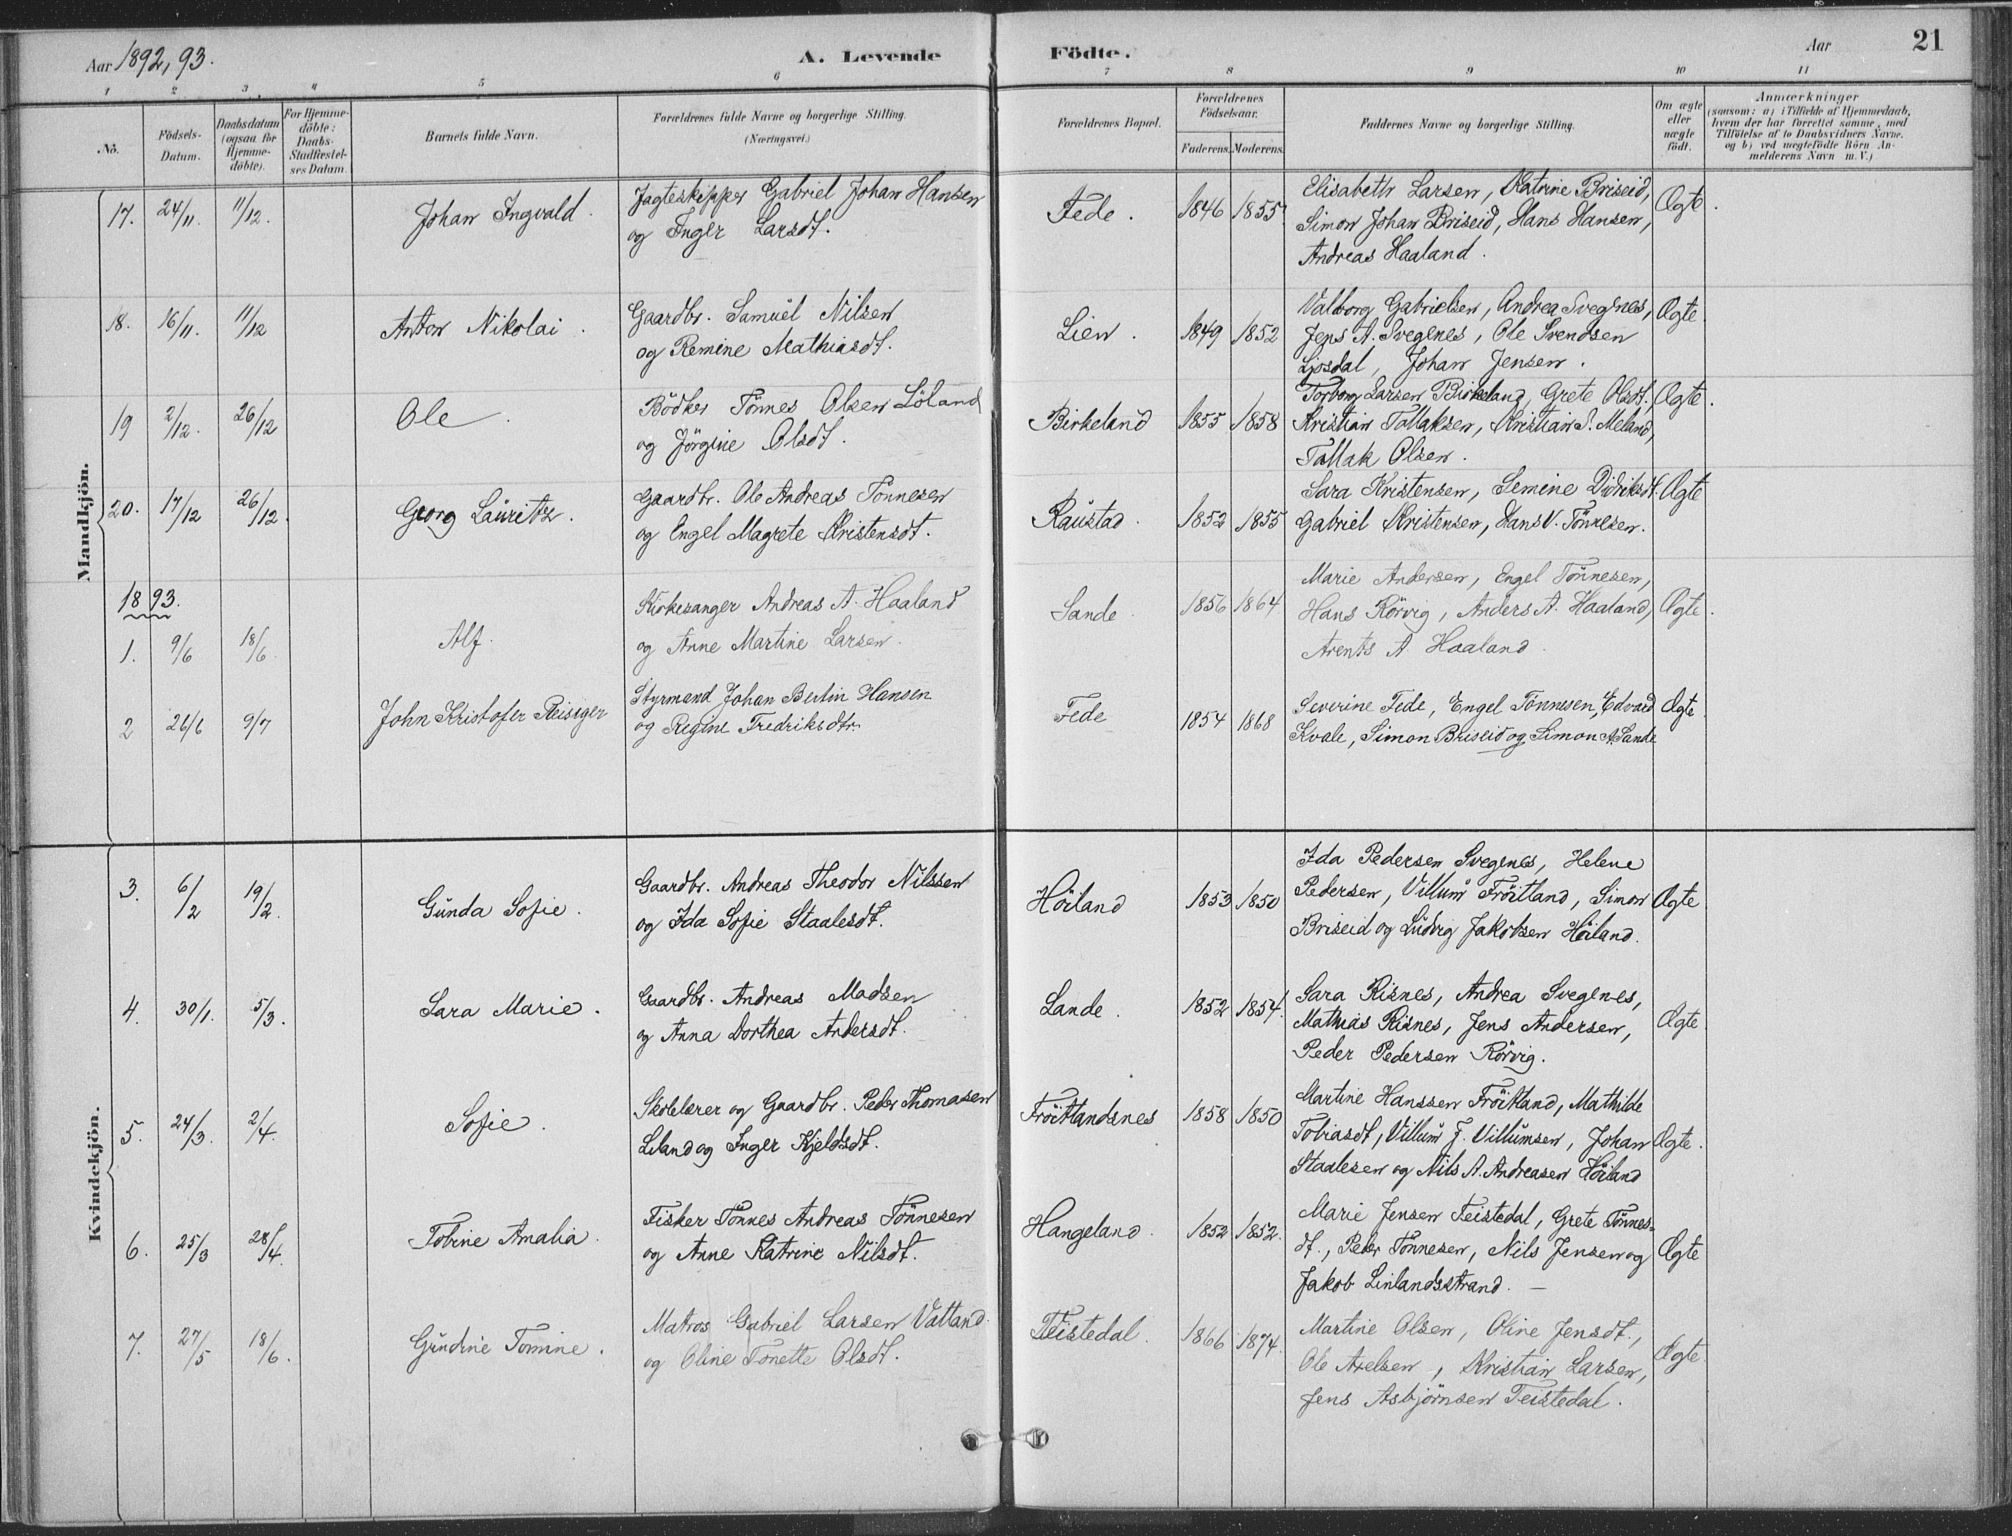 Aar 1892, 93.
A. Levende Födte.
Aar
21
1 2 3 4 5 6 7 8 9 10 11
No.
Födsels-Datum.
Daabsdatum (ogsaa for Hjemme-döbte).
For Hjemme-döbte: Daabs-Stadfæstel-ses Datum.
Barnets fulde Navn.
Forældrenes fulde Navne og borgerlige Stilling.
(Næringsvei.)
Forældrenes Bopæl.
Forældrenes Födselsaar.
Faderens. Moderens.
Faddernes Navne og borgerlige Stilling.
Om ægte eller uægte födt.
Anmærkninger
(saasom: a) i Tilfælde af Hjemmedaab,
hvem der har forrettet samme, med
Tilföielse af to Daabsvidners Navne.
og b) ved uægtefödte Börn An-
melderens Navn m. V.)
Mandkjön.
17. 24/11. 11/12. Johan Ingvald. Jagteskipper Gabriel Johan Hansen Fede. 1846 1855. Elisabeth Larsen, Katrine Briseid, Ægte.
og Inger Larsdt. Simon Johan Briseid, Hans Hansen,
Andreas Haaland.
18. 16/11. 11/12 Anton Nikolai. Gaardbr. Samuel Nilsen Lien. 1849 1852 Valborg Gabrielsen, Andrea Svegnes, Ægte.
og Remine Mathiasdt. Jens A. Svegenes, Ole Svendsen
Ljosdal, Johan Jensen.
19 2/12. 26/12 Ole. Bödker Tönnes Olsen Löland Birkeland 1855 1858 Torborg Larsen Birkeland, Grete Olsdt., Ægte.
og Jörgine Olsdt. Kristian Tollaksen, Kristian S. Meland,
Tollak Olsen.
20. 17/12 26/12. Georg Lauritz. Gaardbr. Ole Andreas Tönnesen Raustad. 1852 1855 Sara Kristensen, Semine Didriksdt. Ægte
og Engel Magrete Kristensdt. Gabriel Kristensen, Hans V. Tönnesen.
1893.
1. 9/6 18/6 Alf. Kirkesanger Andreas A. Haaland Sande. 1856 1864 Marie Andersen, Engel Tönnesen, Ægte.
og Anne Martine Larsen. Hans Rörvig, Anders A. Haaland,
Arents A Haaland.
2 26/6 9/7 John Kristofer Reisiger Styrmand Johan Bertin Hansen Fede 1854 1868 Severine Fede, Engel Tönnesen, Edvard Ægte.
og Regine Fredriksdtr. Kvale, Simon Briseid og Simon A. Sande
Kvindekjön.
3. 6/2 19/2. Gunda Sofie. Gaardbr. Andreas Theodor Nilssen Höiland 1853 1850 Ida Pedersen Svegenes, Helene Ægte
og Ida Sofie Staalesdt. Pedersen, Villum Fröitland, Simon
Briseid og Ludvig Jakobsen Höiland.
4. 30/1. 5/3. Sara Marie. Gaardbr. Andreas Madsen Sande. 1852 1854. Sara Risnes, Andrea Svegenes, Ægte
og Anna Dorthea Andersdt. Mathias Risnes, Jens Andersen,
Peder Pedersen Rörvig.
5. 24/3. 2/4. Sofie. Skolelærer og Gaardbr. Peder Thomasen Fröitlandsnes 1858 1850 Martine Hanssen Fröitland, Mathilde Ægte.
Liland og Inger Kjeldsdt. Tobiasdt, Villum F. Villumsen, Johan
Staalesen og Nils A. Andreasen Höiland
6. 25/3 28/4. Tobine Amalia. Fisker Tönnes Andreas Tönnesen Hangeland. 1852 1852. Marie Jensen Feistedal, Grete Tönnes- Ægte
og Anne Katrine Nilsdt. dt., Peder Tönnesen, Nils Jensen og
Jakob Linlandsstrand. —
7. 27/5 18/6. Gudrine Tomine. Matros Gabriel Larsen Vatland. Feistedal. 1866 1874. Martine Olsen, Oline Jensdt., Ægte
og Oline Tonette Olsdt. Ole Axelsen, Kristian Larsen,
Jens Asbjörnsen Feistedal.